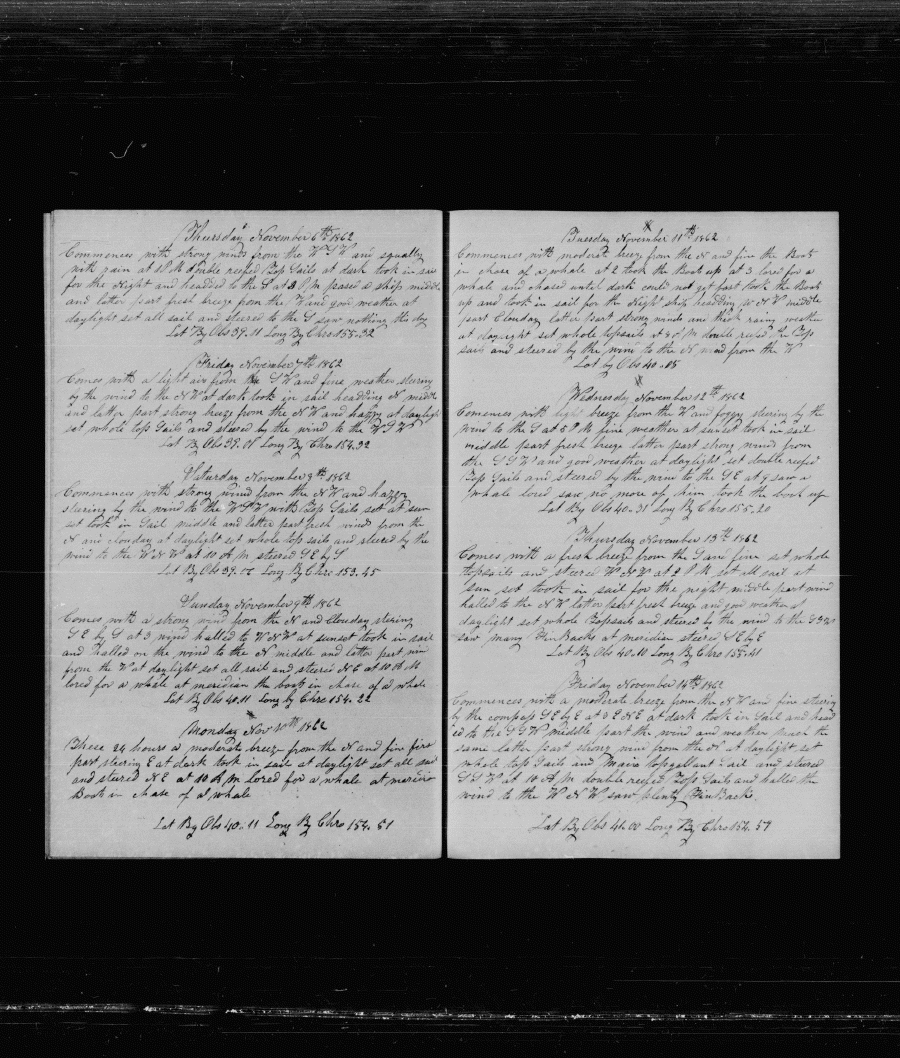 Thursday November 6th 1862
Commences with strong winds from the W S W and squally
with rain at 1 P M double reefed Top Sails at dark took in sail
for the Night and headed to the S at 8 P M pased a ship middle
and latter part fresh breeze from the W and good weather at
daylight set all sail and steered to the S saw nothing this day
Lat By Obs 39.11 Long By Chro 155.32
Friday November 7th 1862
Comes with a light air from the S W and fine weather steering
by the wind to the N W at dark took in sail headding N middle
and latter part strong breeze from the N W and hazzy at daylight
set whole top Sails and steered by the wind to the W S W
Lat By Obs 39.01 Long By Chro 154.32
Saturday November 8th 1862
Commences with strong wind from the N W and hazzy
stearing by the wind to the W S W with Top Sails set at sun
set took in Sail middle and latter part fresh winds from the
N and Cloudy at daylight set whole top sails and steered by the
wind to the W N W at 10 A M steered S E by S
Lat By Obs 39. Long By Chro 153.45
Sunday November 9th 1862
Comes with a strong wind from the N and Clouday stering
S E by S at 3 wind halled to W N W at sunset took in sail
and halled on the wind to the N middle and latter part win
from the W at daylight set all sail and steered N E at 10 A M
lored for a whale at meridian the boats in chase of a whale
Lat By Obs 40.11 Long by Chro 154.22
Monday Nov 10th 1862
These 24 hours a moderate breez from the N and fine first
part steering E at dark took in sail at daylight set all sail
and steered N E at 10 A M Lored for a whale at meridian
Boats in chase of a whale
Lat By Obs 40.11 Long By Chro 154.51
Tuesday November 11th 1862
Commences with moderate breeze from the N and fine the Boats
in chase of a whale at 2 took the Boats up at 3 lored for a
whale and chased until dark could not get fast took the Boats
up and took in sail for the Night ship headding W N W middle
part Clouday latter part strong winds and thick rainy weather
at daylight set whole topsails at 8 A M double reefed the Top
sails and steered by the wind to the N wind from the W
Lat by Obs 40.05
Wednesday November 12th 1862
Comences with light breeze from the W and foggy steering by the
wind to the S at 3 P M fine weather at sunset took in sail
middle part fresh breeze latter part strong wind from
the S S W and good weather at daylight set double reefed
Top Sails and steered by the wind to the S E at 9 saw a
whale lored saw no more of him took the boats up
Lat By Obs 40.31 Long By Chro 155.20
Thursday November 13th 1862
Comes with a fresh breeze from the S and fine set whole
topsails and steered W N W at 2 P M set all sail at
sun set took in sail for the night middle part wind
halled to the N W latter part fresh breeze and good weather at
daylight set whole Topsails and steered by the wind to the S S W
saw many Fin Backs at meridian steered S E by E
Lat By Obs 40.10 Long By Chro 155.41
Friday November 14th 1862
Commences with a moderate breeze from the N W and fine steering
by the compass S E by E at 3 E N E at dark took in Sail and head
ed to the S S W middle part the wind and weather much the
same latter part strong wind from the N at daylight set
whole top Sails and Main topgallant Sail and steered
S S W at 10 A M double reefed Top Sails and halled the
wind to the W N W saw plenty Fin Backs
Lat By Obs 41.00 Long By Chro 154.57